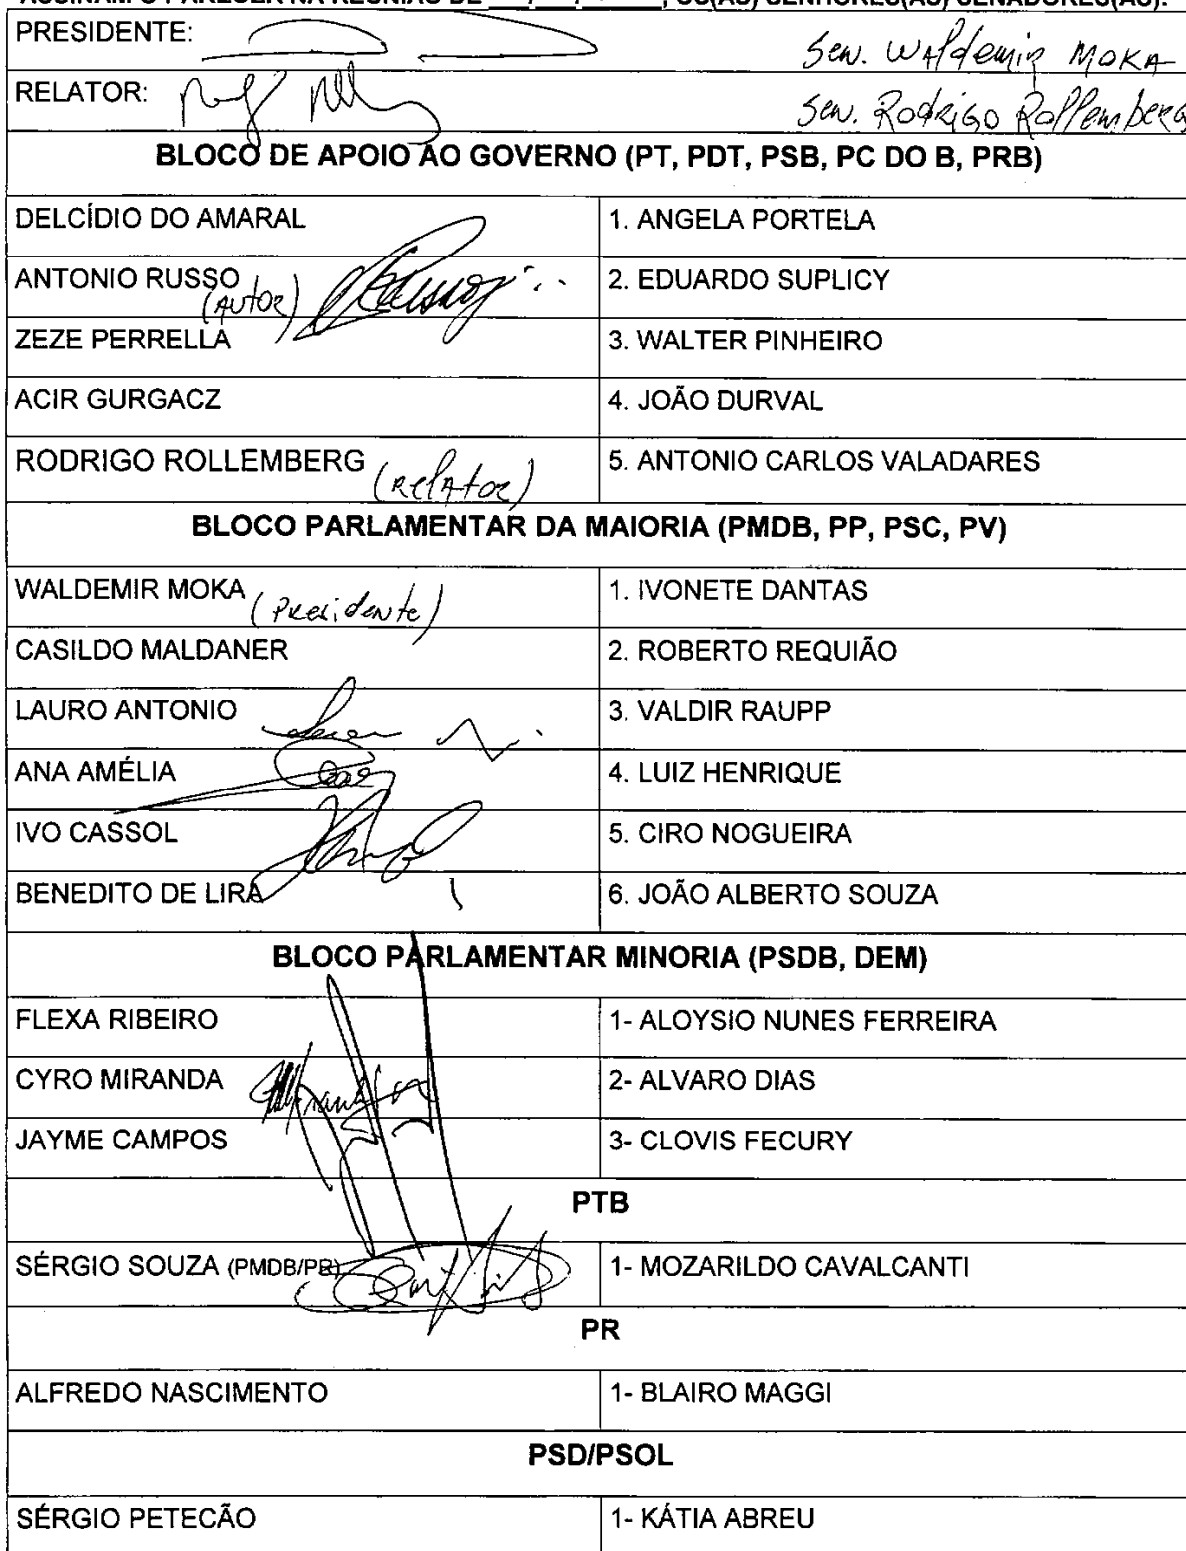 ASSINAM O PARECER NA REUNIÃO DE ___/___/___, OS(AS) SENHORES(AS) SENADORES(AS):
PRESIDENTE: Sen. Waldemir MOKA
RELATOR: Sen. Rodrigo Rollemberg
BLOCO DE APOIO AO GOVERNO (PT, PDT, PSB, PC DO B, PRB)
DELCÍDIO DO AMARAL 1. ANGELA PORTELA
ANTONIO RUSSO (Autor) 2. EDUARDO SUPLICY
ZEZE PERRELLA 3. WALTER PINHEIRO
ACIR GURGACZ 4. JOÃO DURVAL
RODRIGO ROLLEMBERG (Relator) 5. ANTONIO CARLOS VALADARES
BLOCO PARLAMENTAR DA MAIORIA (PMDB, PP, PSC, PV)
WALDEMIR MOKA (Presidente) 1. IVONETE DANTAS
CASILDO MALDANER 2. ROBERTO REQUIÃO
LAURO ANTONIO 3. VALDIR RAUPP
ANA AMÉLIA 4. LUIZ HENRIQUE
IVO CASSOL 5. CIRO NOGUEIRA
BENEDITO DE LIRA 6. JOÃO ALBERTO SOUZA
BLOCO PARLAMENTAR MINORIA (PSDB, DEM)
FLEXA RIBEIRO 1- ALOYSIO NUNES FERREIRA
CYRO MIRANDA 2- ALVARO DIAS
JAYME CAMPOS 3- CLOVIS FECURY
PTB
SÉRGIO SOUZA (PMDB/PR) 1- MOZARILDO CAVALCANTI
PR
ALFREDO NASCIMENTO 1- BLAIRO MAGGI
PSD/PSOL
SÉRGIO PETECÃO 1- KÁTIA ABREU